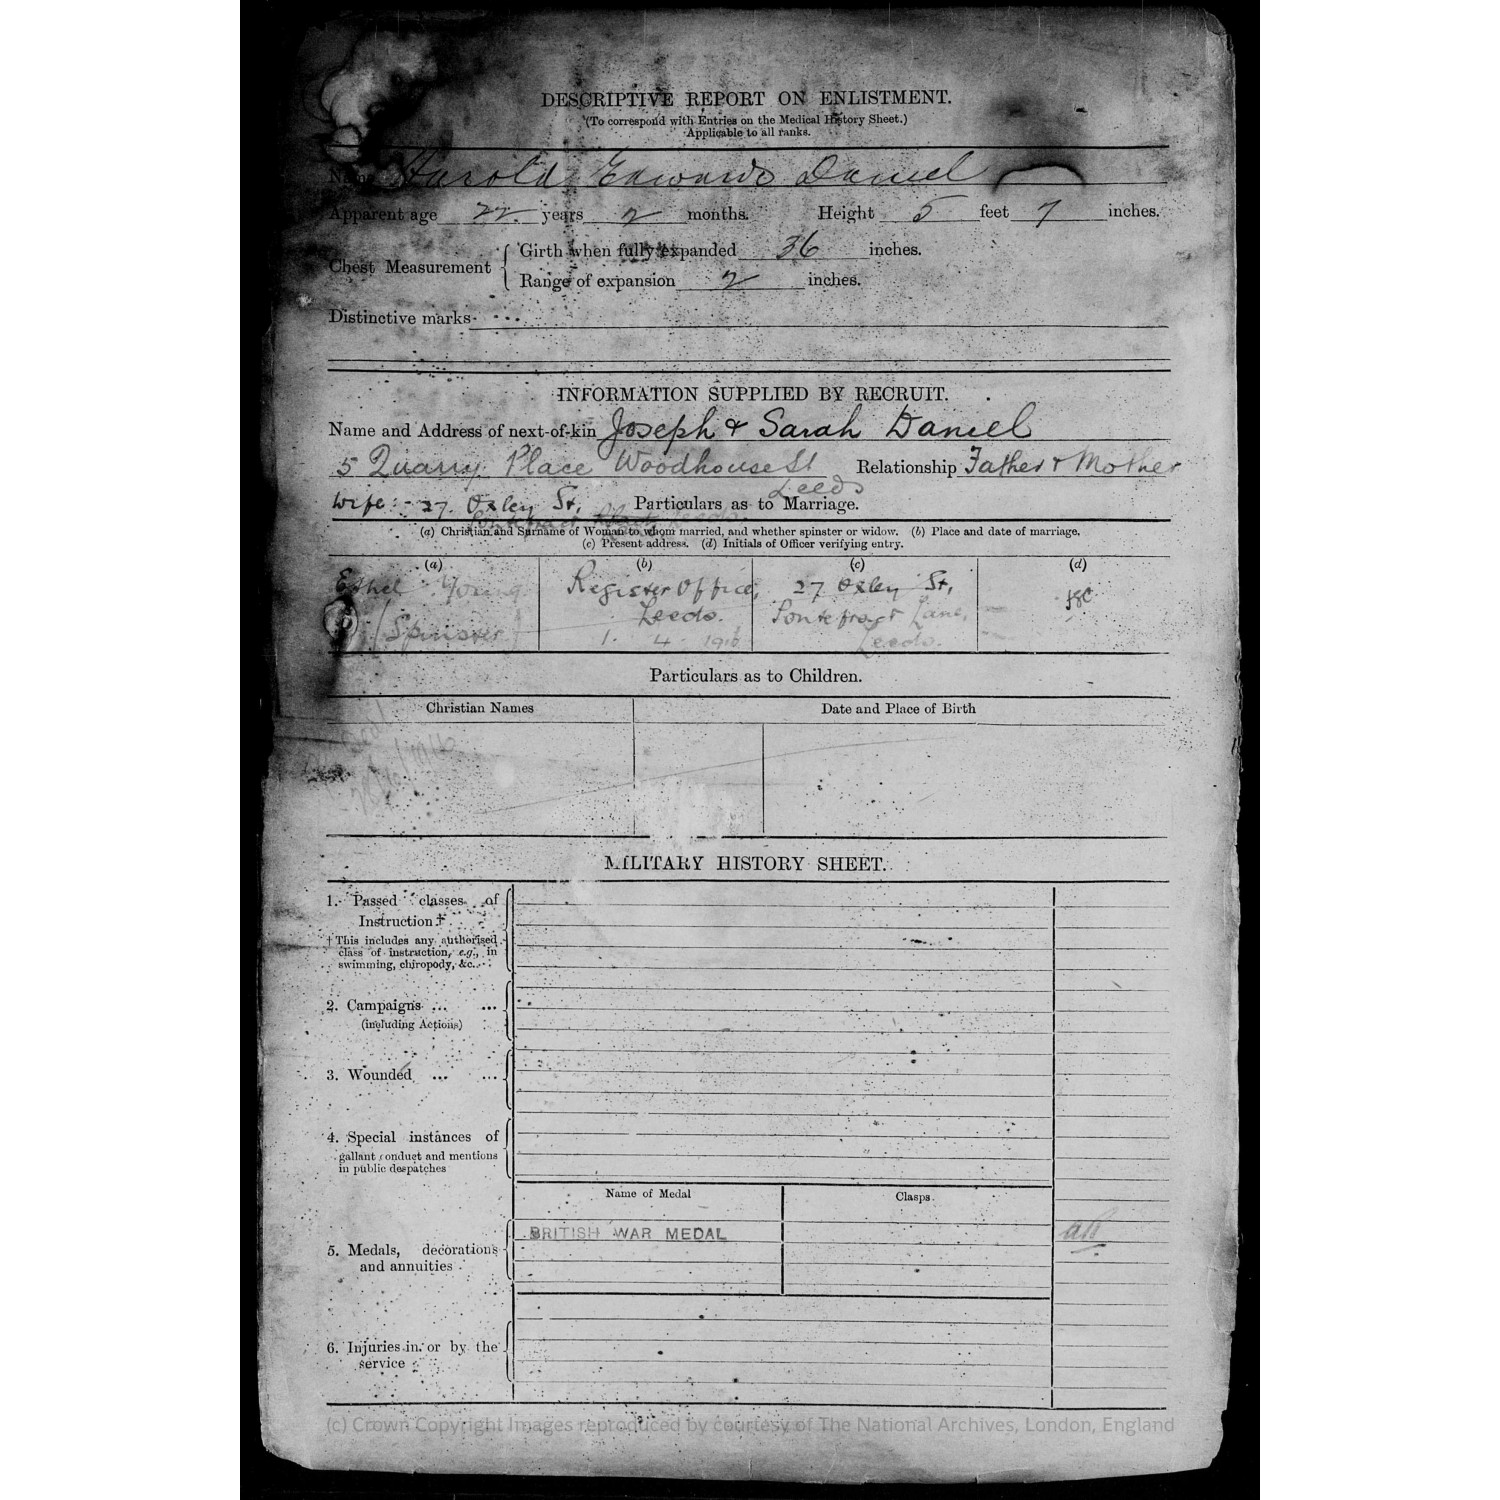 DESCRIPTIVE REPORT ON ENLISTMENT.
(To correspond with Entries on the Medical History Sheet.)
Applicable to all ranks.
Name Harold Edwards Daniel
Apparent age 22 years 2 months. Height 5 feet 7 inches.
Chest Measurement { Girth when fully expanded 36 inches.
Range of expansion 2 inches.
Distinctive marks
INFORMATION SUPPLIED BY RECRUIT.
Name and Address of next-of-kin Joseph & Sarah Daniel
5 Quarry Place Woodhouse St Relationship Father & Mother
Leeds
Wife:- 27 Oxley St, Particulars as to Marriage.
Pontefract Leeds.
(a) Christian and Surname of Woman to whom married, and whether spinster or widow. (b) Place and date of marriage.
(c) Present address. (d) Initials of Officer verifying entry.
(a) (b) (c) (d)
Ethel Young Register Office, 27 Oxley St,
(Spinster) Leeds. Pontefract Lane,
1. 4. 1916 Leeds.
Particulars as to Children.
Christian Names Date and Place of Birth
MILITARY HISTORY SHEET.
1. Passed classes of
Instruction †
† This includes any authorised
class of instruction, e.g., in
swimming, chiropody, &c.
2. Campaigns ... ...
(including Actions)
3. Wounded ... ...
4. Special instances of
gallant conduct and mentions
in public despatches
Name of Medal Clasps
BRITISH WAR MEDAL
5. Medals, decorations
and annuities
6. Injuries in or by the
service
(c) Crown Copyright Images reproduced by courtesy of The National Archives, London, England